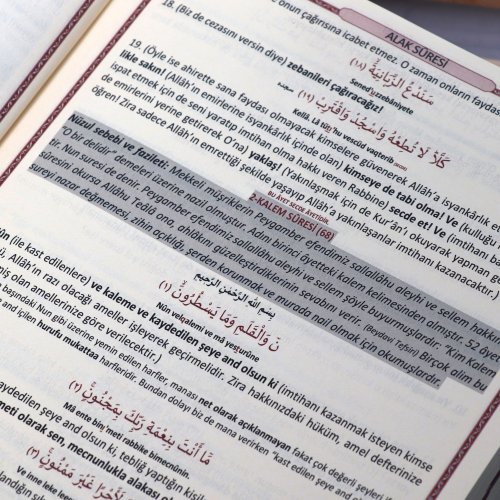 onun çağrısına icabet etmez. O zaman onların fayda
ALAK SÛRESİ
18. (Biz de cezasını versin diye) zebanileri çağıracağız!
سَنَدْعُ الزَّبَانِيَةَ (١٨)
Sened'uzzebâniyete
19. (Öyle ise ahirette sana faydası olmayacak kimselere güvenerek Allâh'a isyankârlık
كَلَّا لَا تُطِعْهُ وَاسْجُدْ وَاقْتَرِبْ (١٩)
likle sakın! (Allâh'ın emirlerine isyankârlık içinde olan) kimseye de tabi olma! Ve (kulluğu
ispat etmek için de seni yaratıp imtihan olma hakkı veren Rabbine) secde et! Ve (imtihanı
de emirlerini yerine getirerek O'na) yaklaş! (Yakınlaşmak için de Kur'ân'ı okuyarak yapman ge
ören! Zira sadece Allâh'ın emrettiği şekilde yaşayıp Allâh'a yakınlaşanlar imtihanı kazanacaktır.)
BU ÂYET SECDE ÂYETİDİR.
2-KALEM SÛRESİ (68)
Nüzul sebebi ve fazileti: Mekkeli müşriklerin Peygamber efendimiz sallallâhu aleyhi ve sellem hakkı
"O bir delidir" demeleri üzerine nazil olmuştur. Adını birinci âyetteki kalem kelimesinden almıştır. 52 âye
dir. Nun suresi de denir. Peygamber efendimiz sallallâhu aleyhi ve sellem şöyle buyurmuşlardır: "Kim Kalem
sûresini okursa Allâhu Teâlâ ona, ahlâkını güzelleştirdiklerinin sevabını verir. (Beydavi Tefsiri) Birçok alim bu
sureyi nazar değmemesi, zihin açıklığı, şerden korunmak ve murada nail olmak için okumuşlardır.
بِسْمِ اللّٰهِ الرَّحْمٰنِ الرَّحِيمِ
نٓ وَالْقَلَمِ وَمَا يَسْطُرُونَ (١)
Nûn velkalemi ve mâ yesturûne
(ile kast edilenlere) ve kaleme ve kaydedilen şeye and olsun ki (imtihanı kazanmak isteyen kimse
Allâh'ın razı olacağı ameller işleyerek geçirmelidir. Zira hakkınızdaki hüküm, amel defterinize
olan amellerinize göre verilecektir.)
başındaki Nun gibi üzerine yemin edilen harfler, manası net olarak açıklanmayan fakat çok değerli şeylere
and içilen hurufu mukattaa harfleridir. Bundan dolayı biz de mana verirken "kast edilen şeye and
مَا أَنْتَ بِنِعْمَةِ رَبِّكَ بِمَجْنُونٍ (٢)
Mâ ente bini'meti rabbike bimecnûnin.
kaydedilen şeye and olsun ki, tebliğ yaptığın kişil
olarak sen, mecnunlukla alakası ol
(٣)
Ve inne leke leec